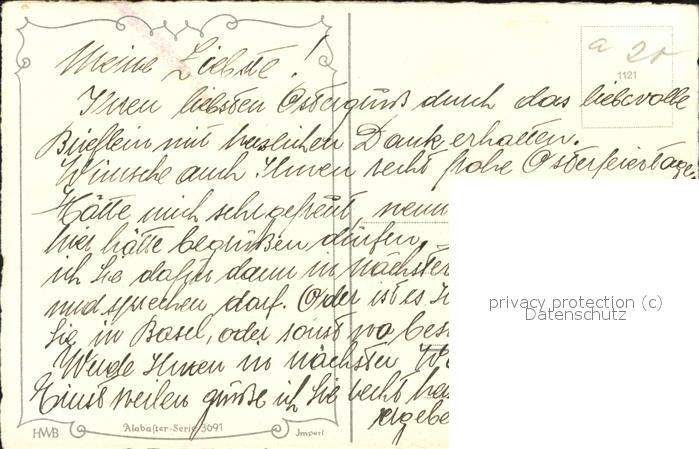 a 20
1121
Meine Liebste!
Ihren liebsten Ostergruß durch das liebevolle
Brieflein mit herzlichen Dank erhalten.
Wünsche auch Ihnen recht frohe Osterfeiertage.
Hätte mich sehr gefreut, wenn
hier hätte begrüßen dürfen,
ich Sie dafür dann in nächster
und sprechen darf. Oder ist es
Sie in Basel, oder sonst wo
Werde Ihnen in nächster
Einstweilen grüße ich Sie recht
privacy protection (c)
Datenschutz
HWB
Alabaster-Serie 3691
Imperi